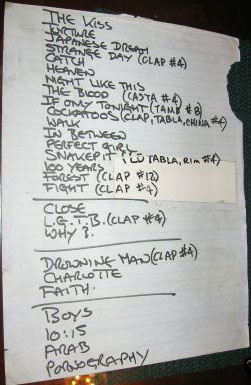 THE KISS
TORTURE
JAPANESE DREAM
STRANGE DAY (CLAP #4)
CATCH
HEAVEN
NIGHT LIKE THIS
THE BLOOD (CASTA #4)
IF ONLY TONIGHT (TAMB #8)
COCKATOOS (CLAP, TABLA, CHINA #4)
WALK
IN BETWEEN
PERFECT GIRL
SNAKEPIT (LO TABLA, RIM #4)
100 YEARS
FOREST (CLAP #12)
FIGHT (CLAP #4)
CLOSE
L.G.T.B. (CLAP #4)
WHY?
DROWNING MAN (CLAP #4)
CHARLOTTE
FAITH.
BOYS
10:15
ARAB
PORNOGRAPHY